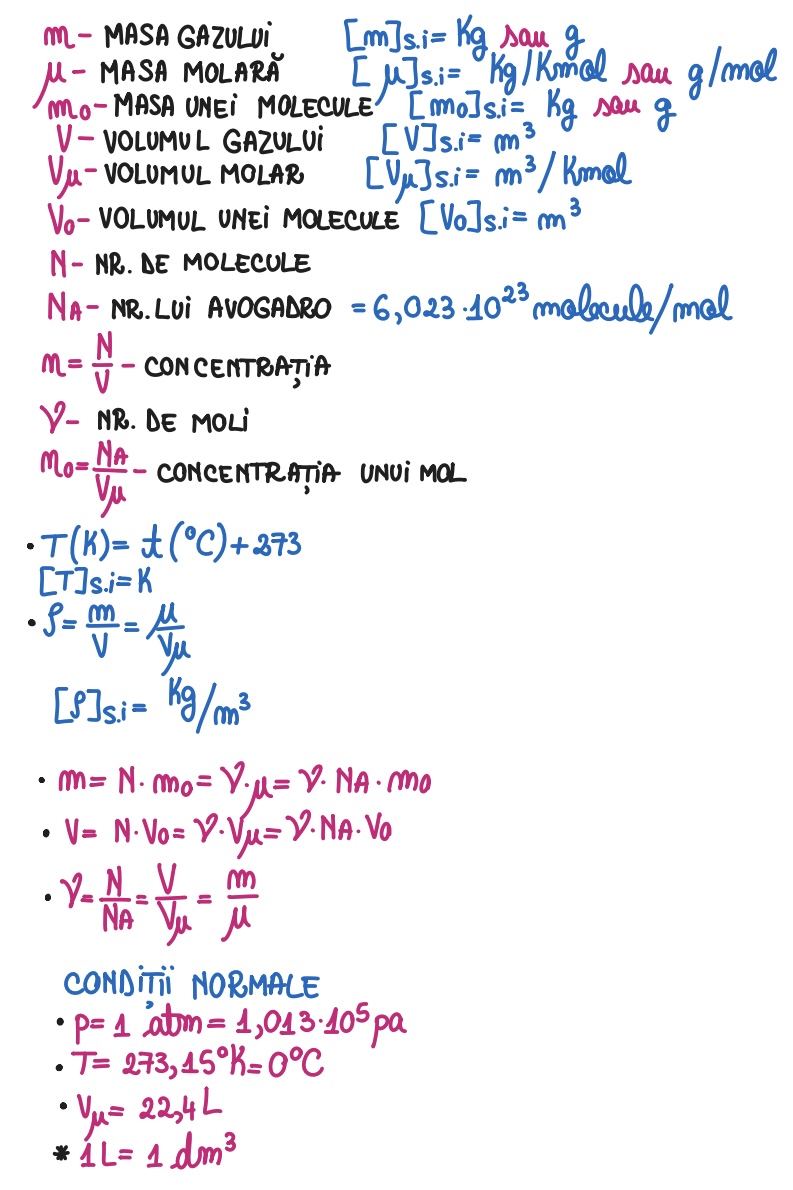 m - MASA GAZULUI [m]s.i = Kg sau g
μ - MASA MOLARĂ [μ]s.i = Kg/Kmol sau g/mol
m₀ - MASA UNEI MOLECULE [m₀]s.i = Kg sau g
V - VOLUMUL GAZULUI [V]s.i = m³
Vμ - VOLUMUL MOLAR [Vμ]s.i = m³/Kmol
V₀ - VOLUMUL UNEI MOLECULE [V₀]s.i = m³
N - NR. DE MOLECULE
NA - NR. LUI AVOGADRO = 6,023·10²³ molecule/mol
n = N/V - CONCENTRAȚIA
ν - NR. DE MOLI
n₀ = NA/Vμ - CONCENTRAȚIA UNUI MOL
• T(K) = t(°C) + 273
[T]s.i = K
• ρ = m/V = μ/Vμ
[ρ]s.i = Kg/m³
• m = N·m₀ = ν·μ = ν·NA·m₀
• V = N·V₀ = ν·Vμ = ν·NA·V₀
• ν = N/NA = V/Vμ = m/μ
CONDIȚII NORMALE
• p = 1 atm = 1,013·10⁵ pa
• T = 273,15°K = 0°C
• Vμ = 22,4 L
* 1 L = 1 dm³